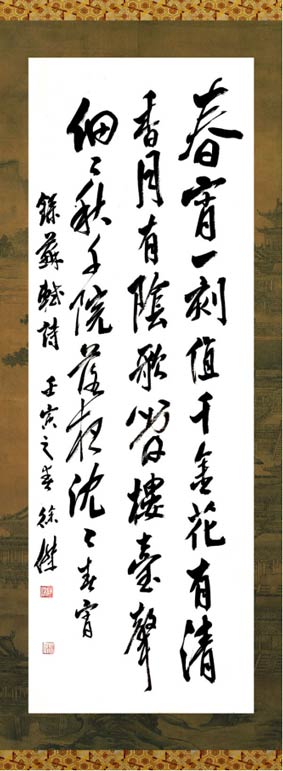 春宵一刻值千金花有清
香月有陰歌管樓臺聲
細〻秋千院落夜沈〻春宵
錄蘇軾詩 壬寅之春 徐傑